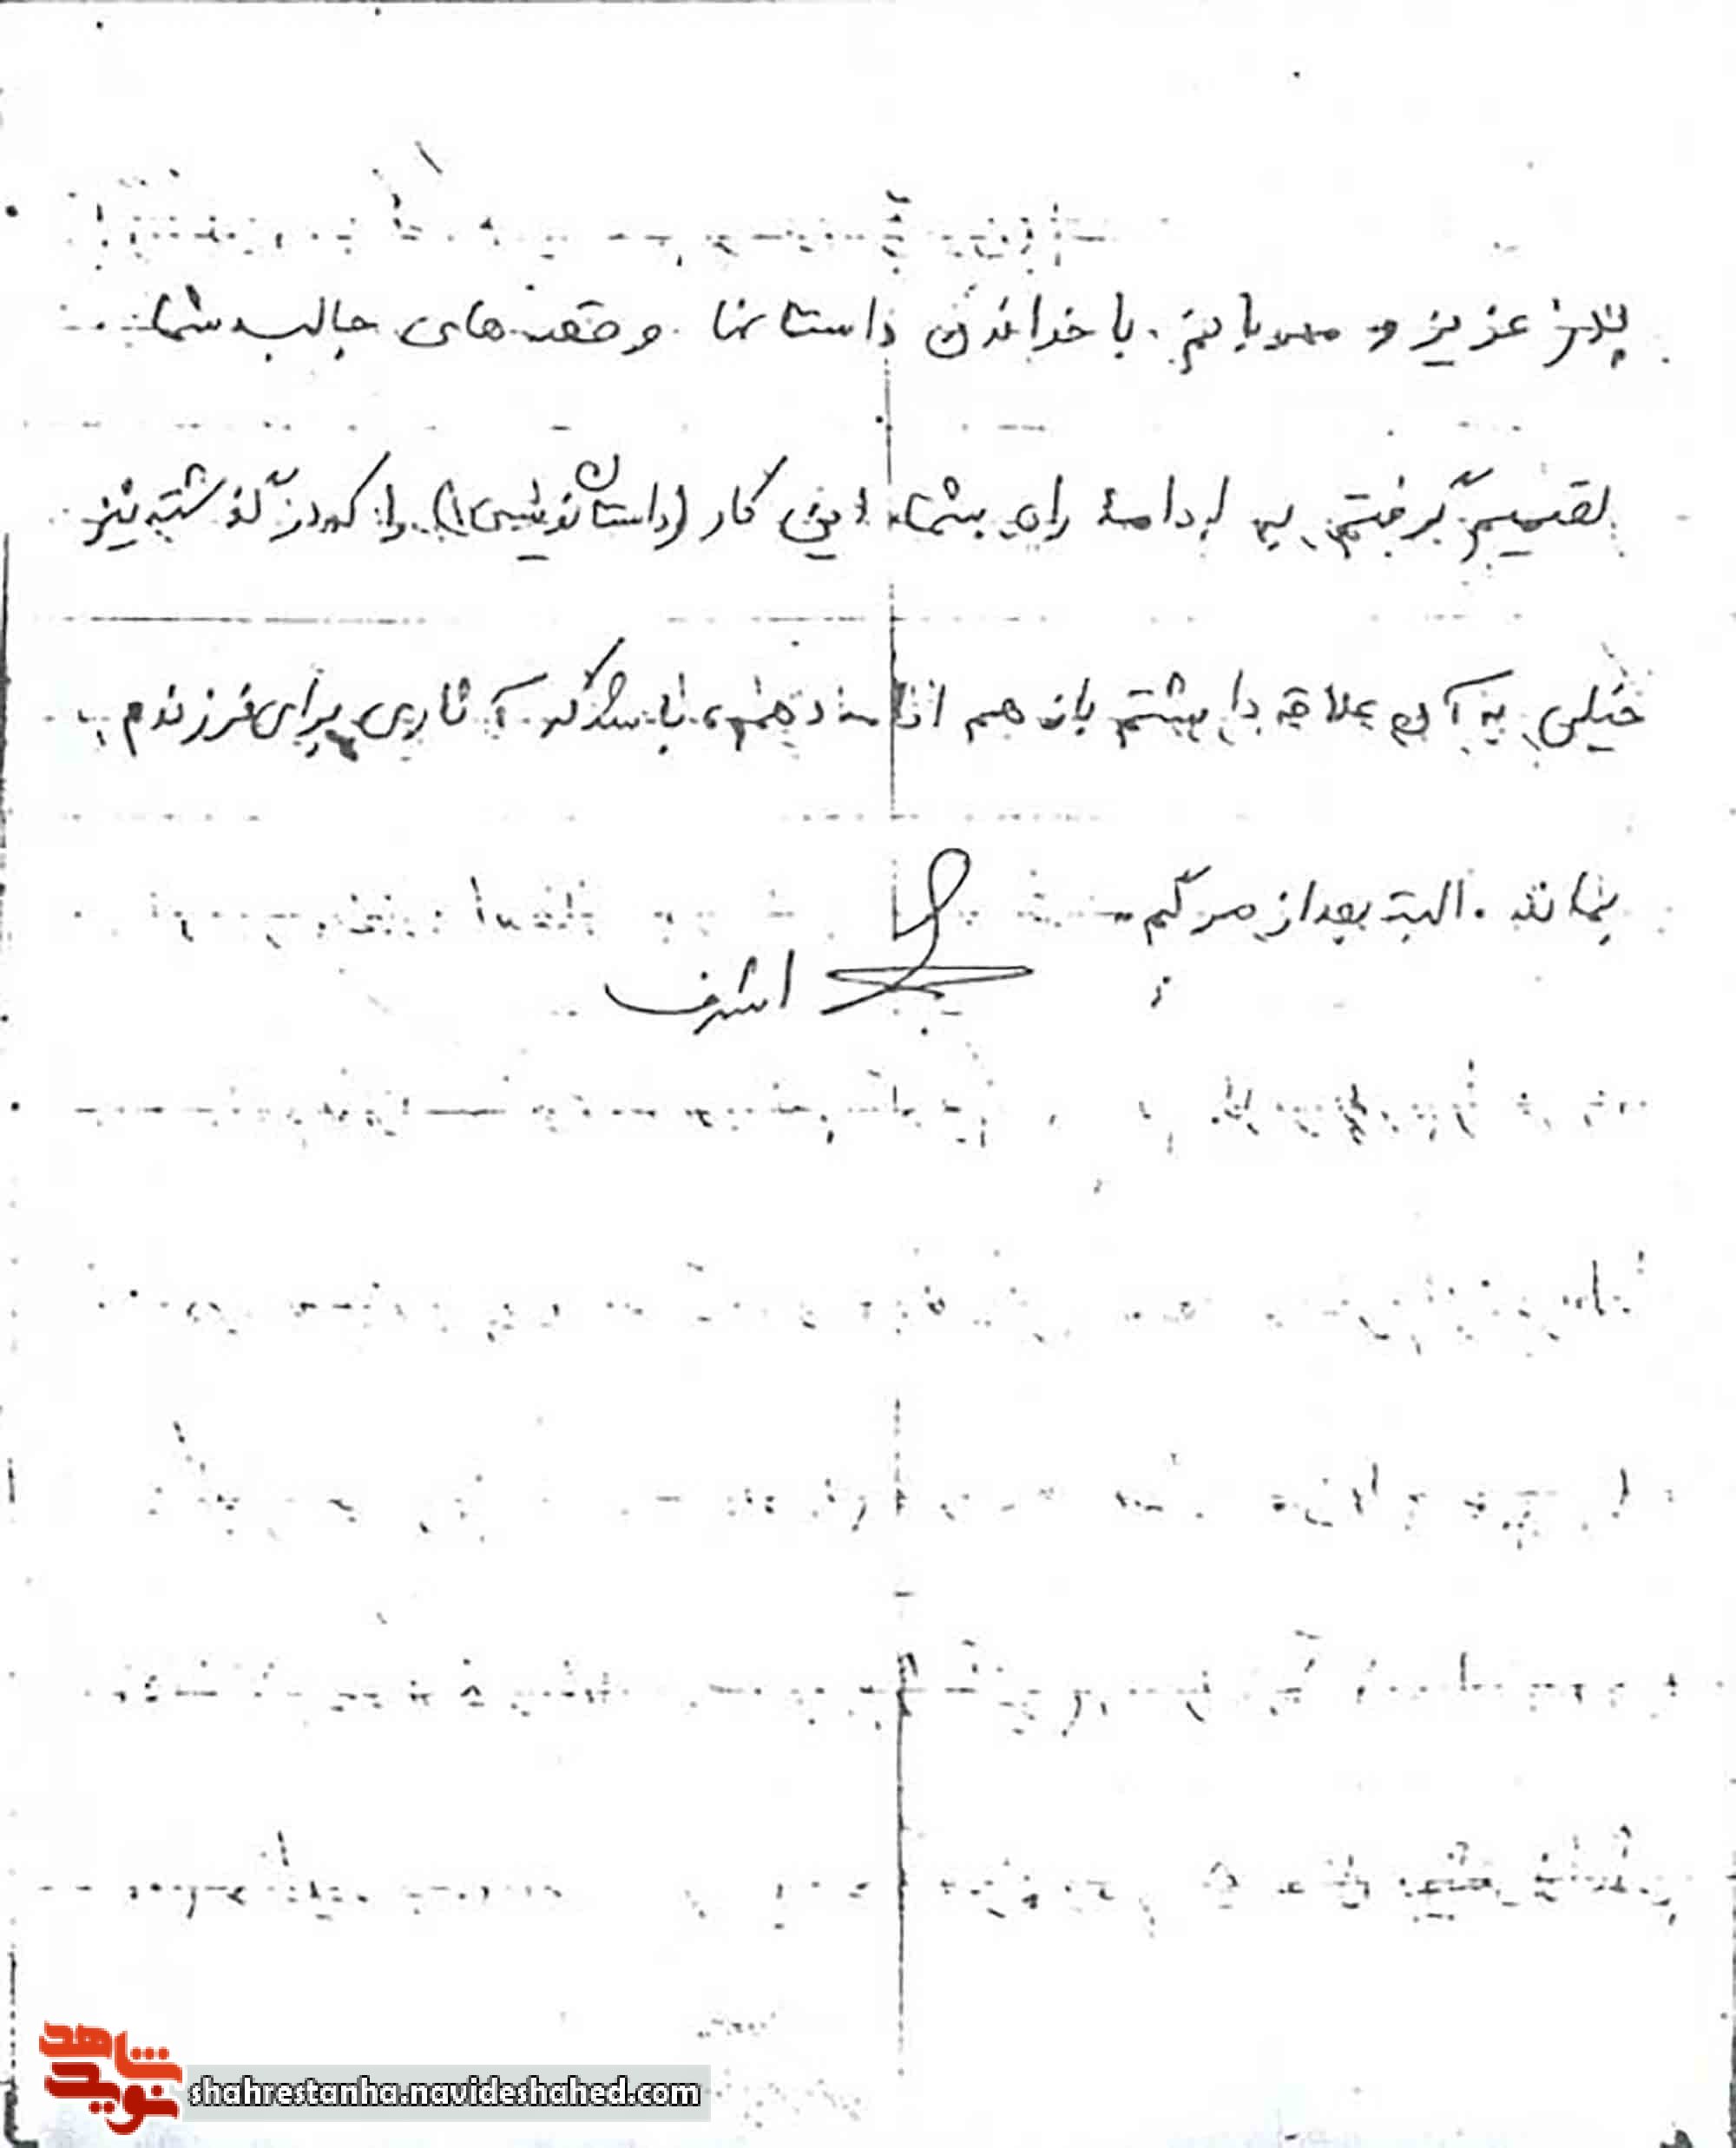 پدر عزیز و مهربانم. با خواندن داستانها و قصه‌های جالب شما
تصمیم گرفتم به ادامهٔ راه شما این کار (داستان نویسی) را که در گذشته نیز
خیلی به آن علاقه داشتم باز هم ادامه دهم، باشد که آثاری برای فرزندم
بماند. البته بعد از مرگم
اشرف
نوید شاهد
shahrestanha.navideshahed.com